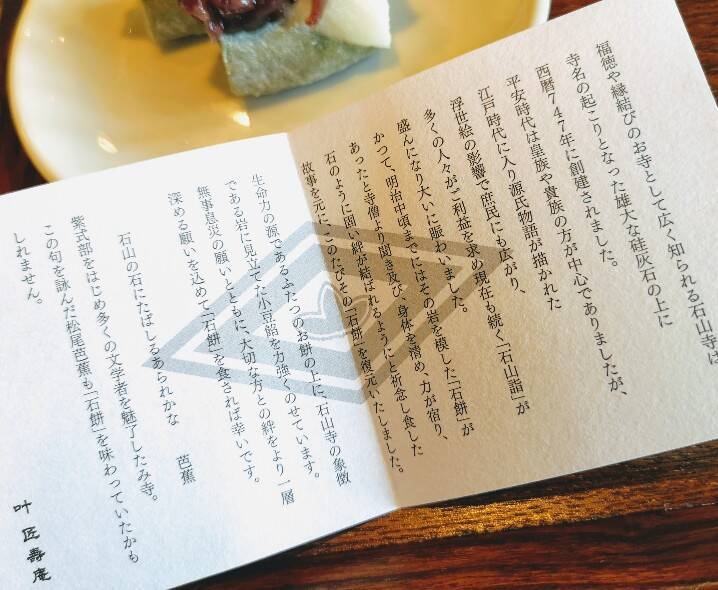 福徳や縁結びのお寺として広く知られる石山寺は
寺名の起こりとなった雄大な硅灰石の上に
西暦747年に創建されました。
平安時代は皇族や貴族の方が中心でありましたが、
江戸時代に入り源氏物語が描かれた
浮世絵の影響で庶民にも広がり、
多くの人々がご利益を求め現在も続く「石山詣」が
盛んになり大いに賑わいました。
かつて、明治中頃までにはその岩を模した「石餅」が
あったと寺僧より聞き及び、身体を清め、力が宿り、
石のように固い絆が結ばれるようにと祈念し食した
故事を元に、このたびその「石餅」を復元いたしました。
生命力の源であるふたつのお餅の上に、石山寺の象徴
である岩に見立てた小豆餡を力強くのせています。
無事息災の願いとともに、大切な方との絆をより一層
深める願いを込めて「石餅」を食されば幸いです。
石山の石にたばしるあられかな 芭蕉
紫式部をはじめ多くの文学者を魅了したみ寺。
この句を詠んだ松尾芭蕉も「石餅」を味わっていたかも
しれません。
叶 匠壽庵